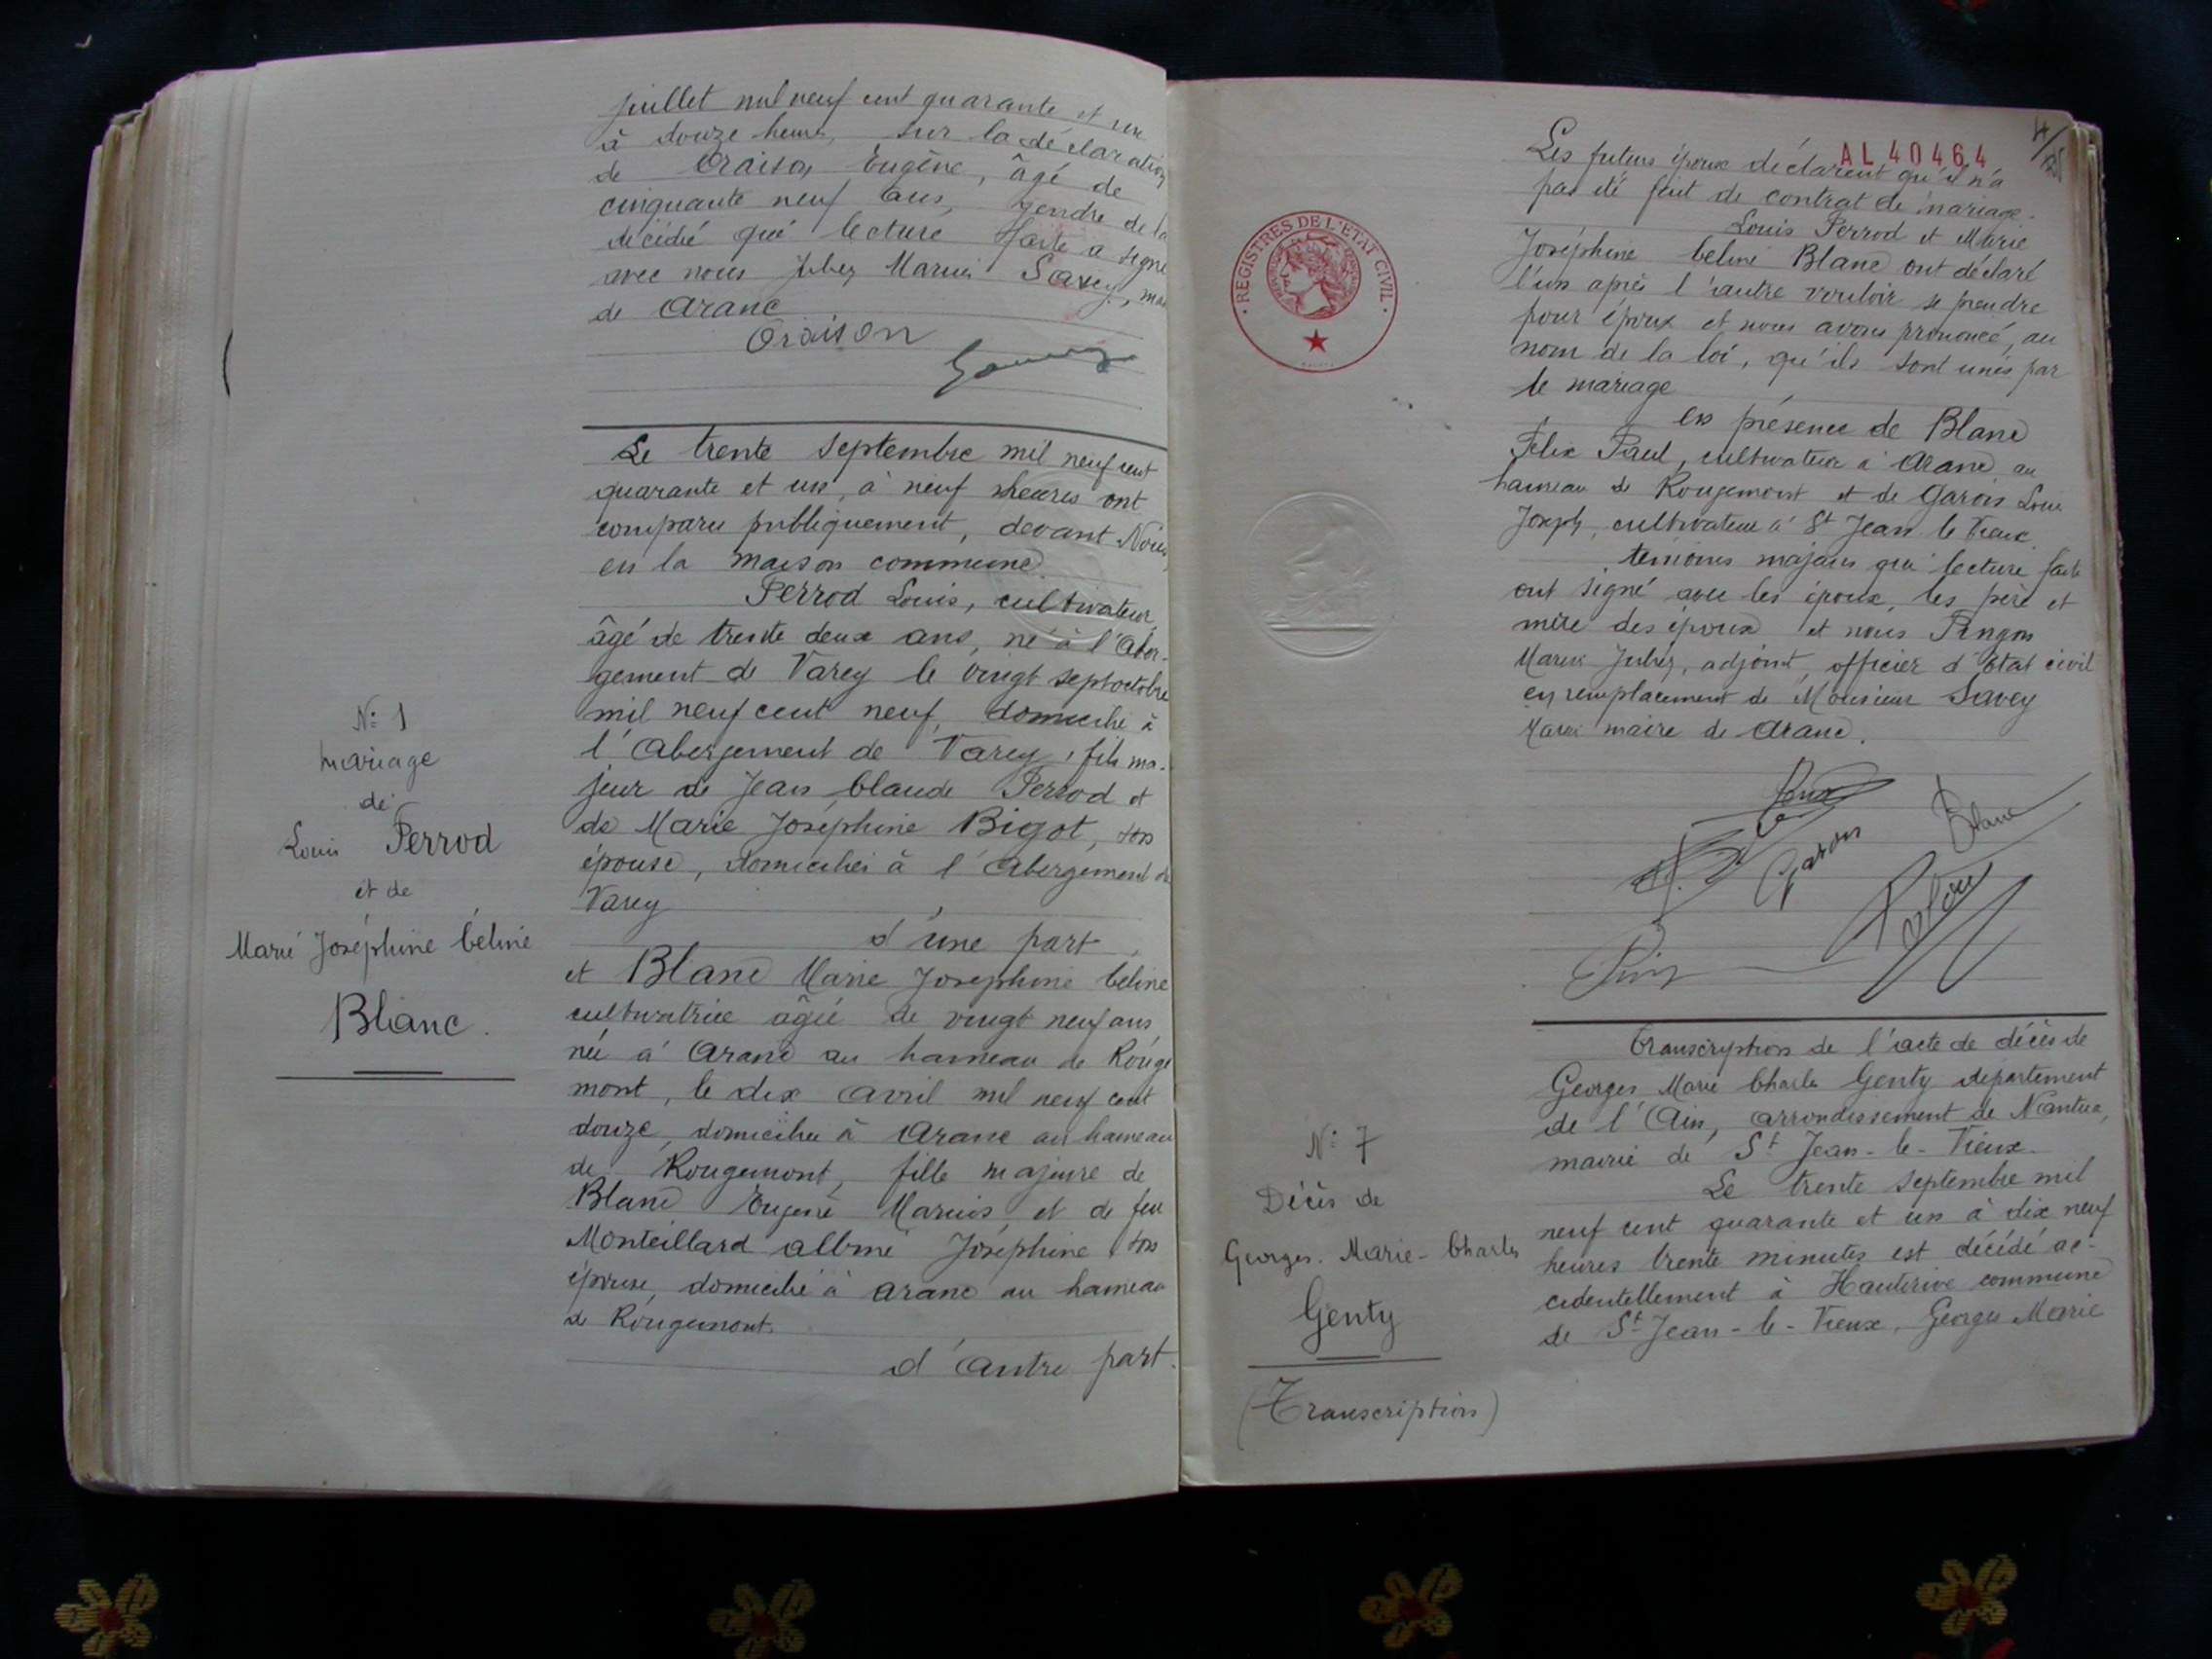 juillet mil neuf cent quarante et un
à douze heures, sur la déclaration
de Oraison Eugène, âgé de
cinquante neuf ans, gendre de la
décédée qui lecture faite a signé
avec nous Juhez Marius Savey, 
de Aranc
Oraison
Le trente septembre mil neuf cent
quarante et un, à neuf heures ont
comparu publiquement, devant Nous
en la maison commune
Perrod Louis, cultivateur,
âgé de trente deux ans, né à l'Aber-
gement de Varey le vingt sept octobre
mil neuf cent neuf, domicilié à
l'Abergement de Varey, fils ma-
jeur de Jean Claude Perrod et
de Marie Joséphine Bigot, son
épouse, domiciliés à l'Abergement de
Varey
d'une part,
et Blanc Marie Josephine Celine
cultivatrice âgée de vingt neuf ans
née à Aranc au hameau de Rouge
mont, le dix avril mil neuf cent
douze, domiciliée à Aranc au hameau
de Rougemont, fille majeure de
Blanc Eugène Marius, et de feu
Monteillard Albine Joséphine son
épouse, domicilié à Aranc au hameau
de Rougemont.
d'autre part.
N° 1
mariage
de
Louis Perrod
et de
Marie Joséphine Céline
Blanc.
AL 40464
Les futurs époux déclarent qu'il n'a
pas été fait de contrat de mariage.
Louis Perrod et Marie
Joséphine Celine Blanc ont déclaré
l'un après l'autre vouloir se prendre
pour époux et nous avons prononcé, au
nom de la loi, qu'ils sont unis par
le mariage
en présence de Blanc
Felix Paul, cultivateur à Aranc au
hameau de Rougemont et de Garon Louis
Joseph, cultivateur à St Jean le Vieux
temoins majeurs qui lecture faite
ont signé avec les époux, les père et
mère des époux et nous Pingon
Marius Juhez, adjoint, officier d'Etat civil
en remplacement de Monsieur Savey
maire de Aranc.
Garon
Blanc
REGISTRES DE L'ETAT CIVIL
Transcription de l'acte de décès de
Georges Marie Charles Genty département
de l'Ain, arrondissement de Nantua,
mairie de St Jean-le-Vieux.
Le trente septembre mil
neuf cent quarante et un à dix neuf
heures trente minutes est décédé ac-
cidentellement à Hauterive commune
de St-Jean-le-Vieux, Georges Marie
N° 7
Décès de
Georges-Marie-Charles
Genty
(Transcription)